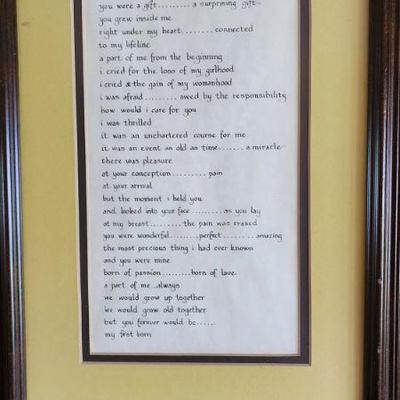 you were a gift......... a surprising gift
you grew inside me
right under my heart........ connected
to my lifeline
a part of me from the beginning
i cried for the loss of my girlhood
i cried & the gain of my womanhood
i was afraid......... awed by the responsibility
how would i care for you
i was thrilled
it was an unchartered course for me
it was an event as old as time....... a miracle
there was pleasure
at your conception......... pain
at your arrival
but the moment i held you
and looked into your face......... as you lay
at my breast......... the pain was erased
you were wonderful........perfect......... amazing
the most precious thing i had ever known
and you were mine
born of passion.........born of love.
a part of me...always
we would grow up together
we would grow old together
but you forever would be......
my first born